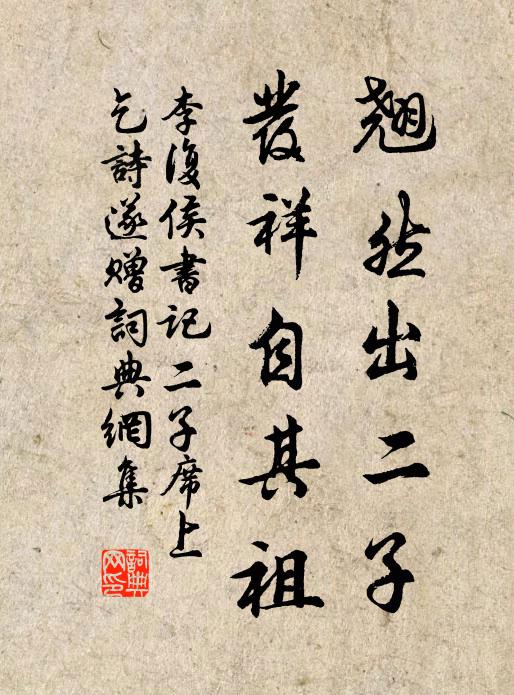 翹然出二子
發祥自其祖
李復侯書記二子席上
乞詩遂贈詞典網集
詞典
网印